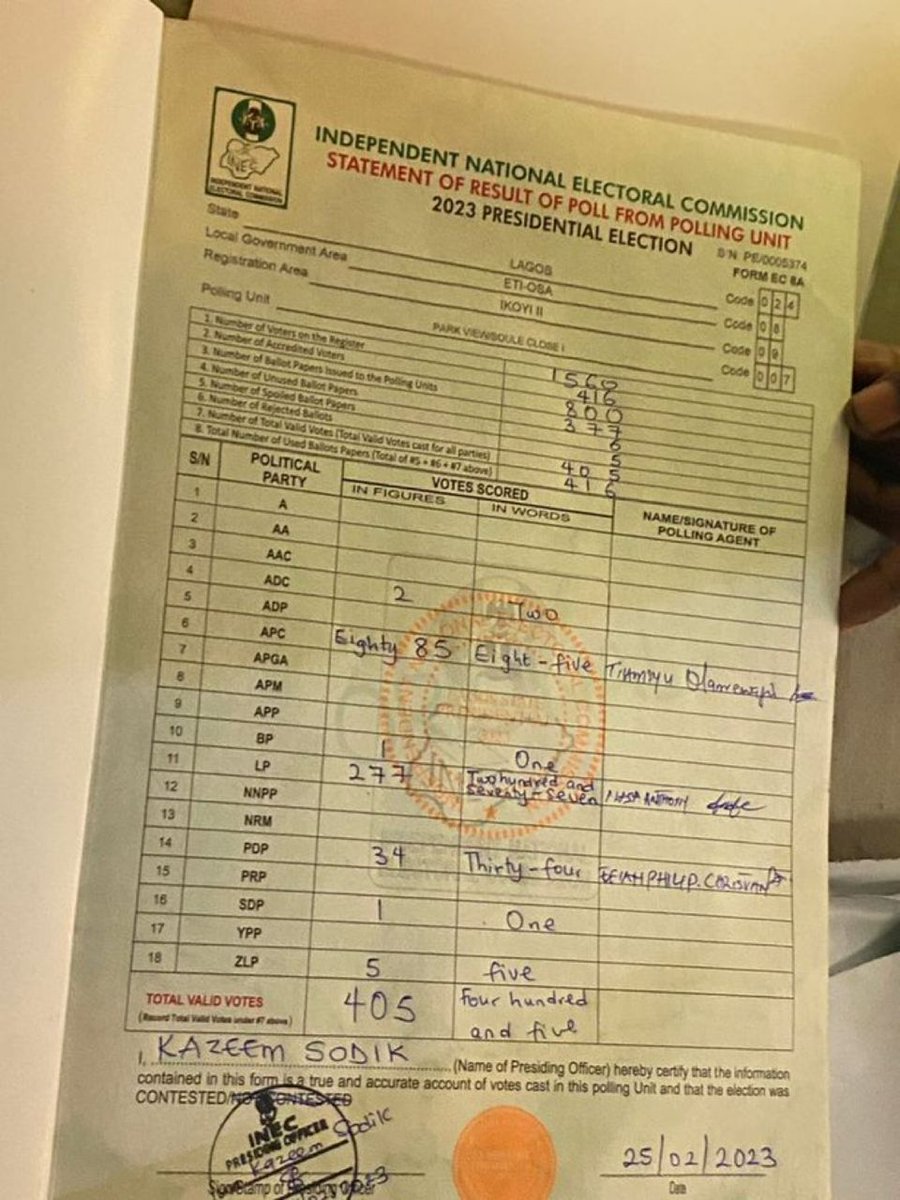 INEC
INDEPENDENT NATIONAL ELECTORAL COMMISSION
INDEPENDENT NATIONAL ELECTORAL COMMISSION
STATEMENT OF RESULT OF POLL FROM POLLING UNIT
2023 PRESIDENTIAL ELECTION
S/N PE/0005374
FORM EC 8A
State LAGOS Code 024
Local Government Area ETI-OSA Code 08
Registration Area IKOYI II Code 09
Polling Unit PARK VIEW/SOULE CLOSE I Code 007
1. Number of Voters on the Register 1560
2. Number of Accredited Voters 416
3. Number of Ballot Papers Issued to the Polling Units 800
4. Number of Unused Ballot Papers 377
5. Number of Spoiled Ballot Papers 6
6. Number of Rejected Ballots 5
7. Number of Total Valid Votes (Total Valid Votes cast for all parties) 405
8. Total Number of Used Ballots Papers (Total of #5 + #6 + #7 above) 416
S/N POLITICAL PARTY VOTES SCORED NAME/SIGNATURE OF POLLING AGENT
IN FIGURES IN WORDS
1 A
2 AA
3 AAC
4 ADC 2 Two
5 ADP
6 APC Eighty 85 Eight-five
7 APGA
8 APM
9 APP
10 BP 1 One
11 LP 277 Two hundred and seventy-seven ANTHONY
12 NNPP
13 NRM
14 PDP 34 Thirty-four
15 PRP
16 SDP 1 One
17 YPP
18 ZLP 5 five
TOTAL VALID VOTES 405 Four hundred and five
(Record Total Valid Votes under #7 above)
I, KAZEEM SODIK (Name of Presiding Officer) hereby certify that the information
contained in this form is a true and accurate account of votes cast in this polling Unit and that the election was
CONTESTED/NOT CONTESTED
INEC
PRESIDING OFFICER
Kazeem Sodik
Sign/Stamp of Presiding Officer
25/02/2023
Date